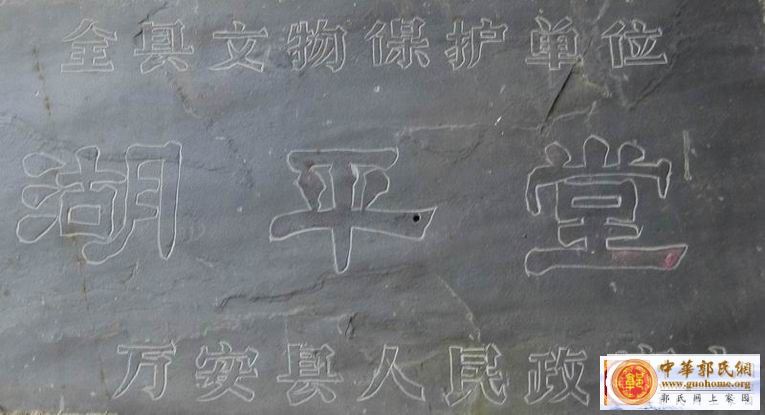 全县文物保护单位
湖平堂
万安县人民政
中華郭氏網
www.guohome.org
郭氏网上家园